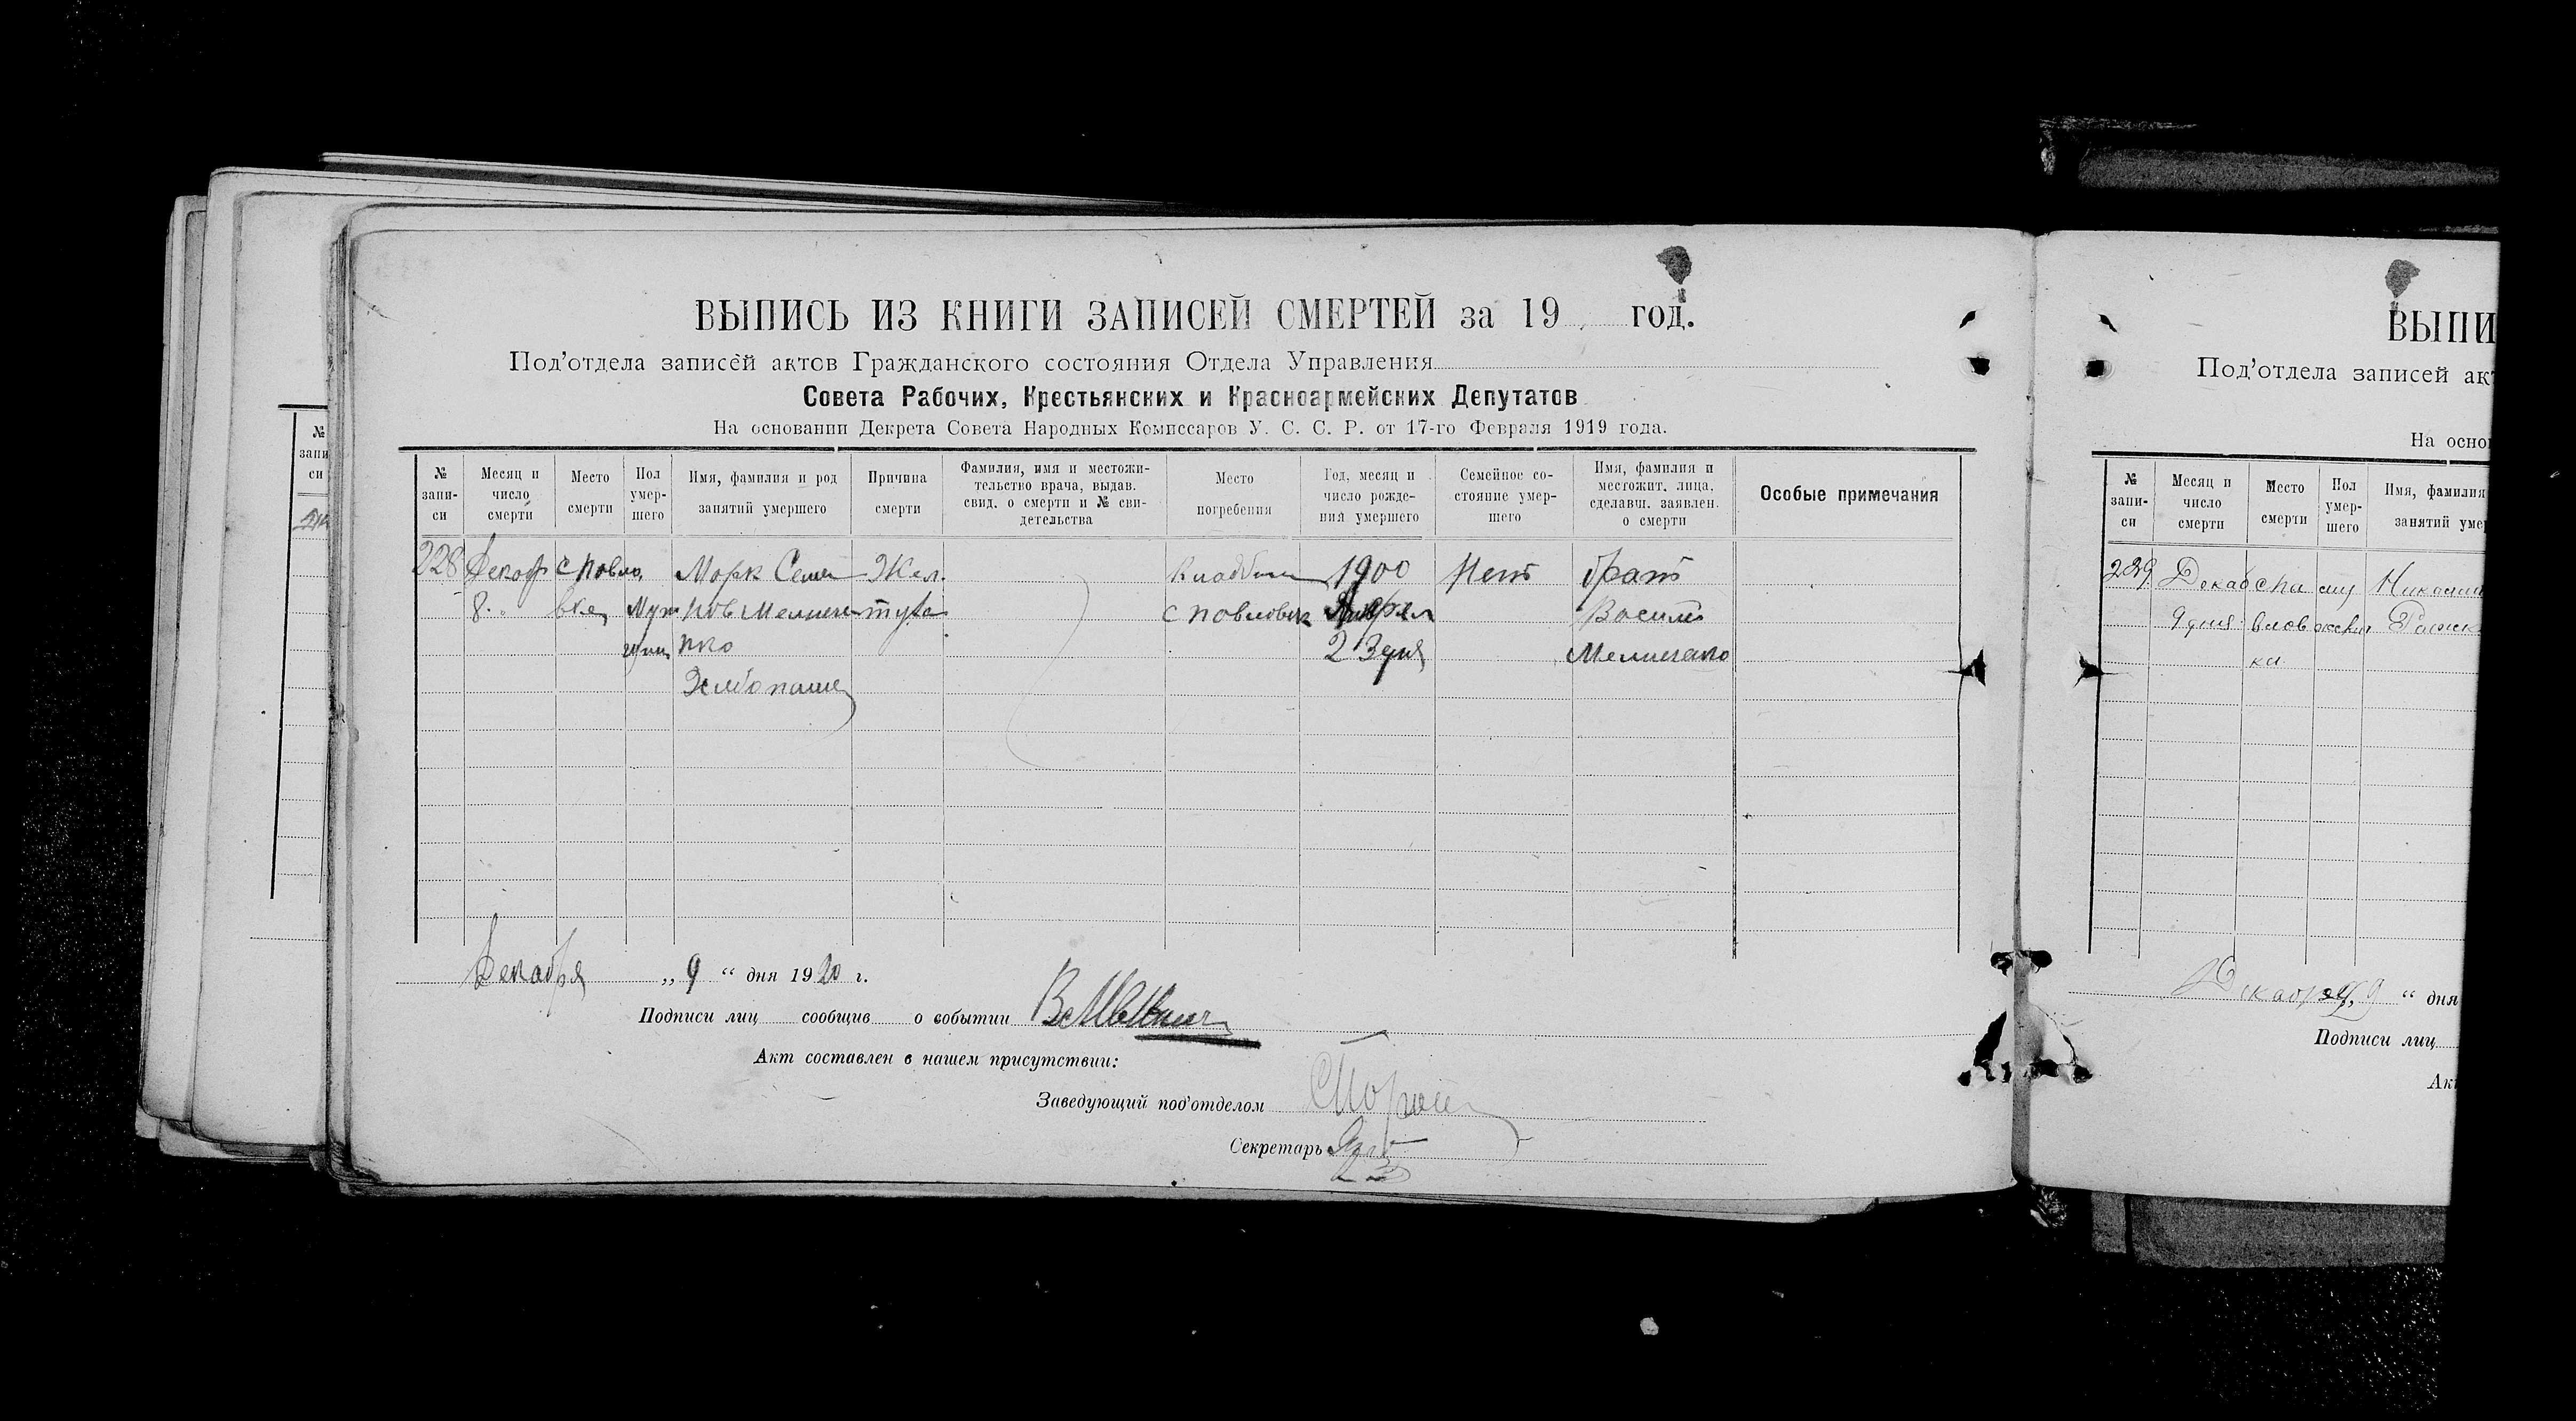 ВЫПИСЬ ИЗ КНИГИ ЗАПИСЕЙ СМЕРТЕЙ за 19 год.
Под’отдела записей актов Гражданского состояния Отдела Управления
Совета Рабочих, Крестьянских и Красноармейских Депутатов
На основании Декрета Совета Народных Комиссаров У. С. С. Р. от 17-го Февраля 1919 года.
№ запи-си
Месяц и число смерти
Место смерти
Пол умер-шего
Имя, фамилия и род занятий умершего
Причина смерти
Фамилия, имя и местожи-тельство врача, выдав. свид. о смерти и № сви-детельства
Место погребения
Год, месяц и число рожде-ния умершего
Семейное со-стояние умер-шего
Имя, фамилия и местожит. лица, сделавш. заявлен. о смерти
Особые примечания
228 Декабр с Повло Марк Семе Жел. Кладбищ 1900 Нет брат
8 вке Муж нов Мельниче туха с Повловк Василь
чин нко 23 дня Мельниченко
Хлебопаше
Декабря „ 9 “ дня 1920 г.
Подписи лиц сообщив о событии
Акт составлен в нашем присутствии:
Заведующий под’отделом
Секретарь
№ запи си
ВЫПИ
Под’отдела записей акт
На осно
№ запи-си
Месяц и число смерти
Место смерти
Пол умер-шего
Имя, фамилия занятий уме
229 Декаб с Па му Николай
9 дня влов жский
ка
Декабря 9 “ дня
Подписи лиц
Ак